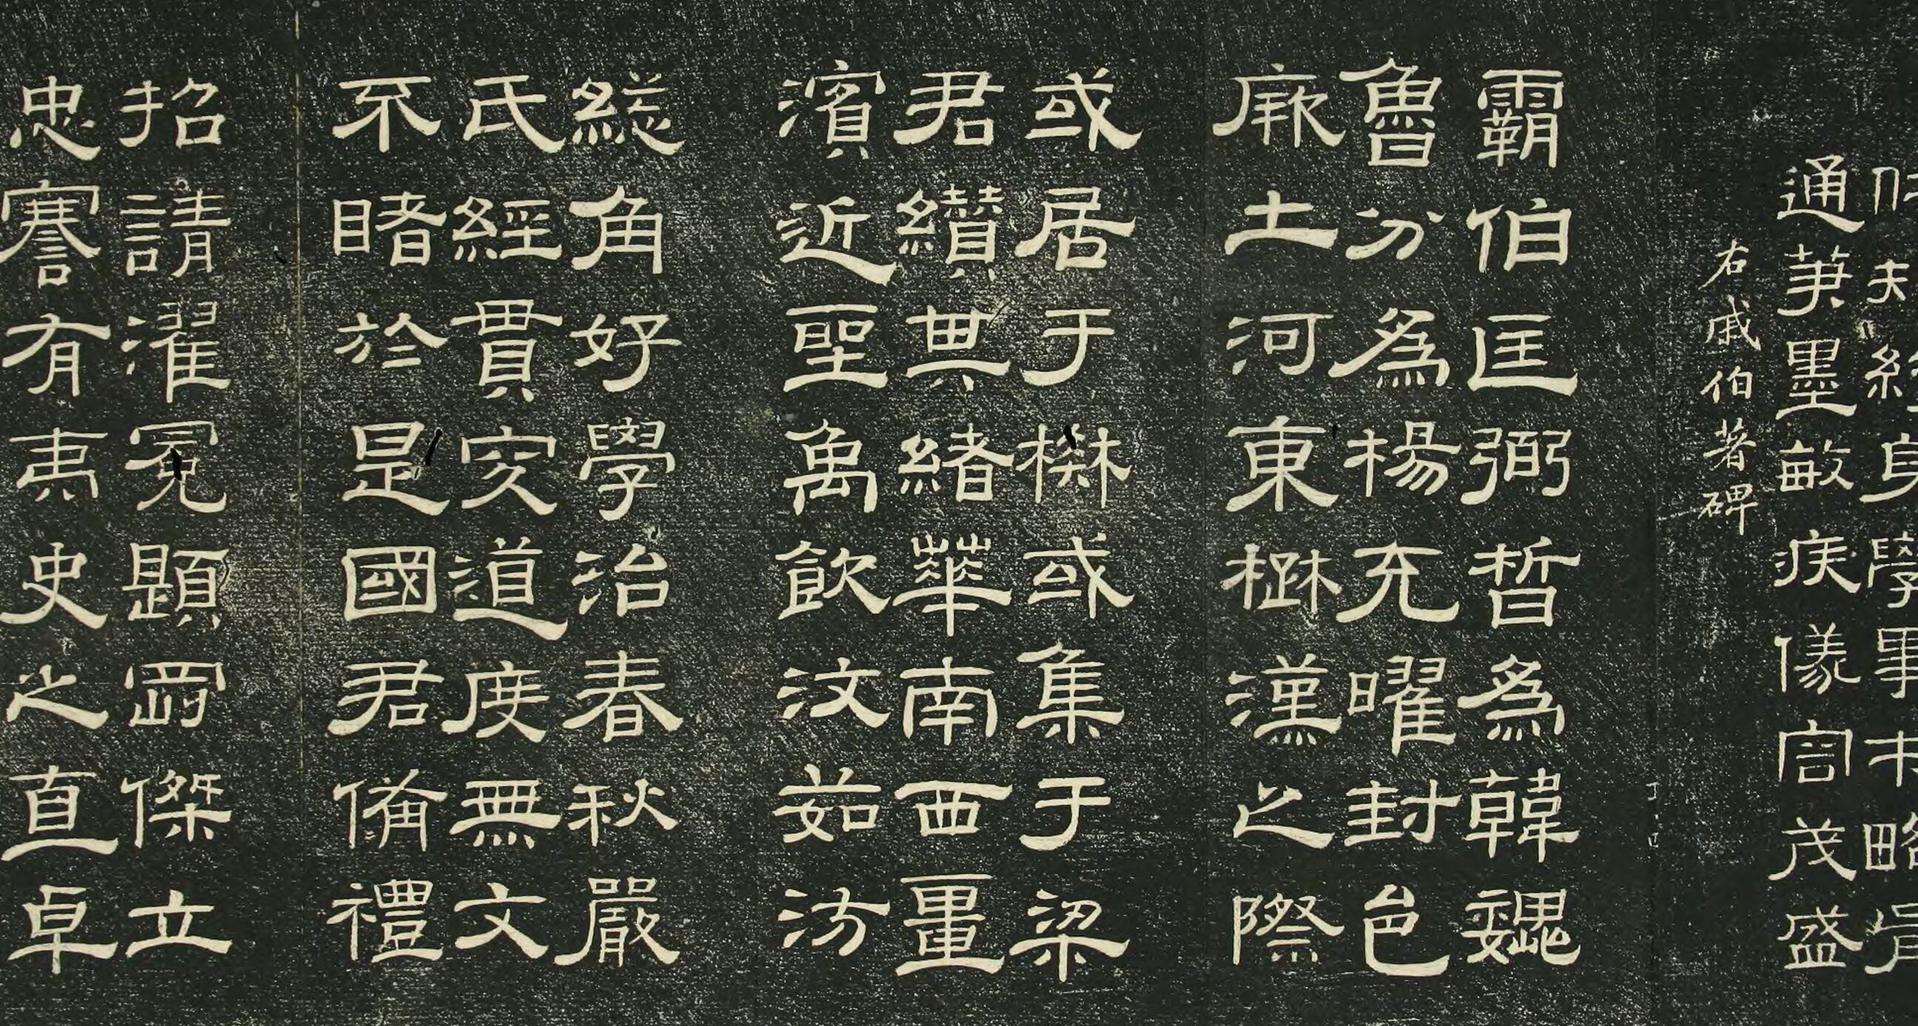 夫 身學事 略
通 墨敏疾儀 茂盛
右戚伯著碑
霸伯匡弼晳為韓魏
魯分為楊充曜封邑
厥土河東楙漢之際
或居于楙或集于梁
君纘其緒華南西畺
濱近聖禹飲汶茹汸
緫角好學治春秋嚴
氏經貫究道度無文
不睹於是國君備禮
招請濯冕題剛傑立
忠謇有夷史之直卓